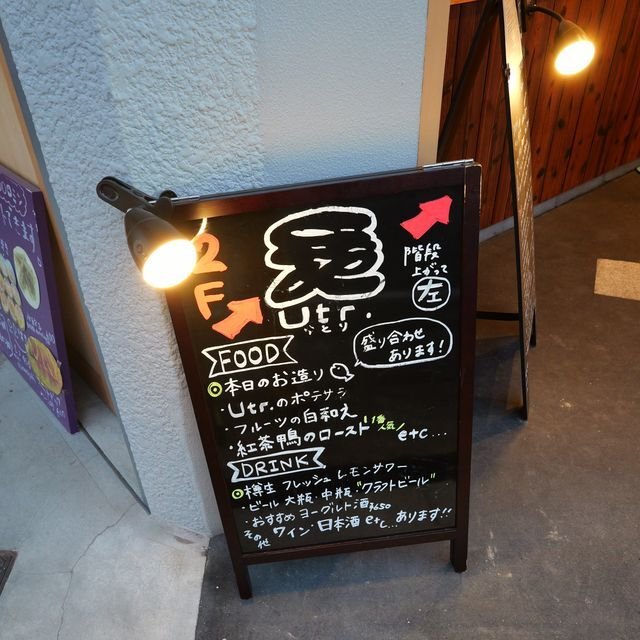 2F
utr.
うとり
階段
上がって
左
FOOD
盛り合わせ
あります!
◎本日のお造り
・utr.のポテサラ
・フルーツの白和え
・紅茶鴨のロースト 1番人気 etc...
DRINK
◎樽生 フレッシュレモンサワー
・ビール 大瓶 中瓶 "クラフトビール"
・おすすめ ヨーグルト酒 ¥650
その他 ワイン 日本酒 etc... あります!!